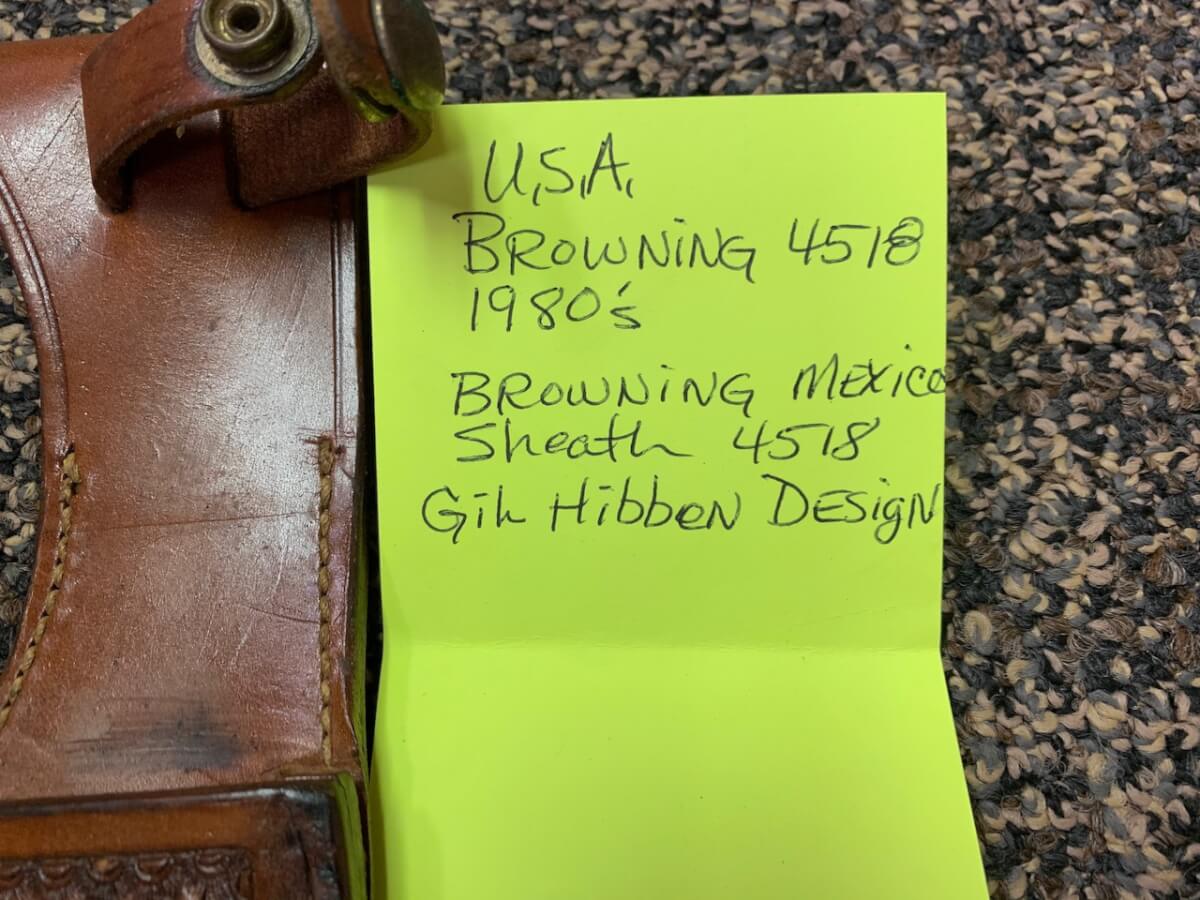 U.S.A.
BROWNING 4518
1980's
BROWNING MEXICO
Sheath 4518
Gil HibbEN DESigN